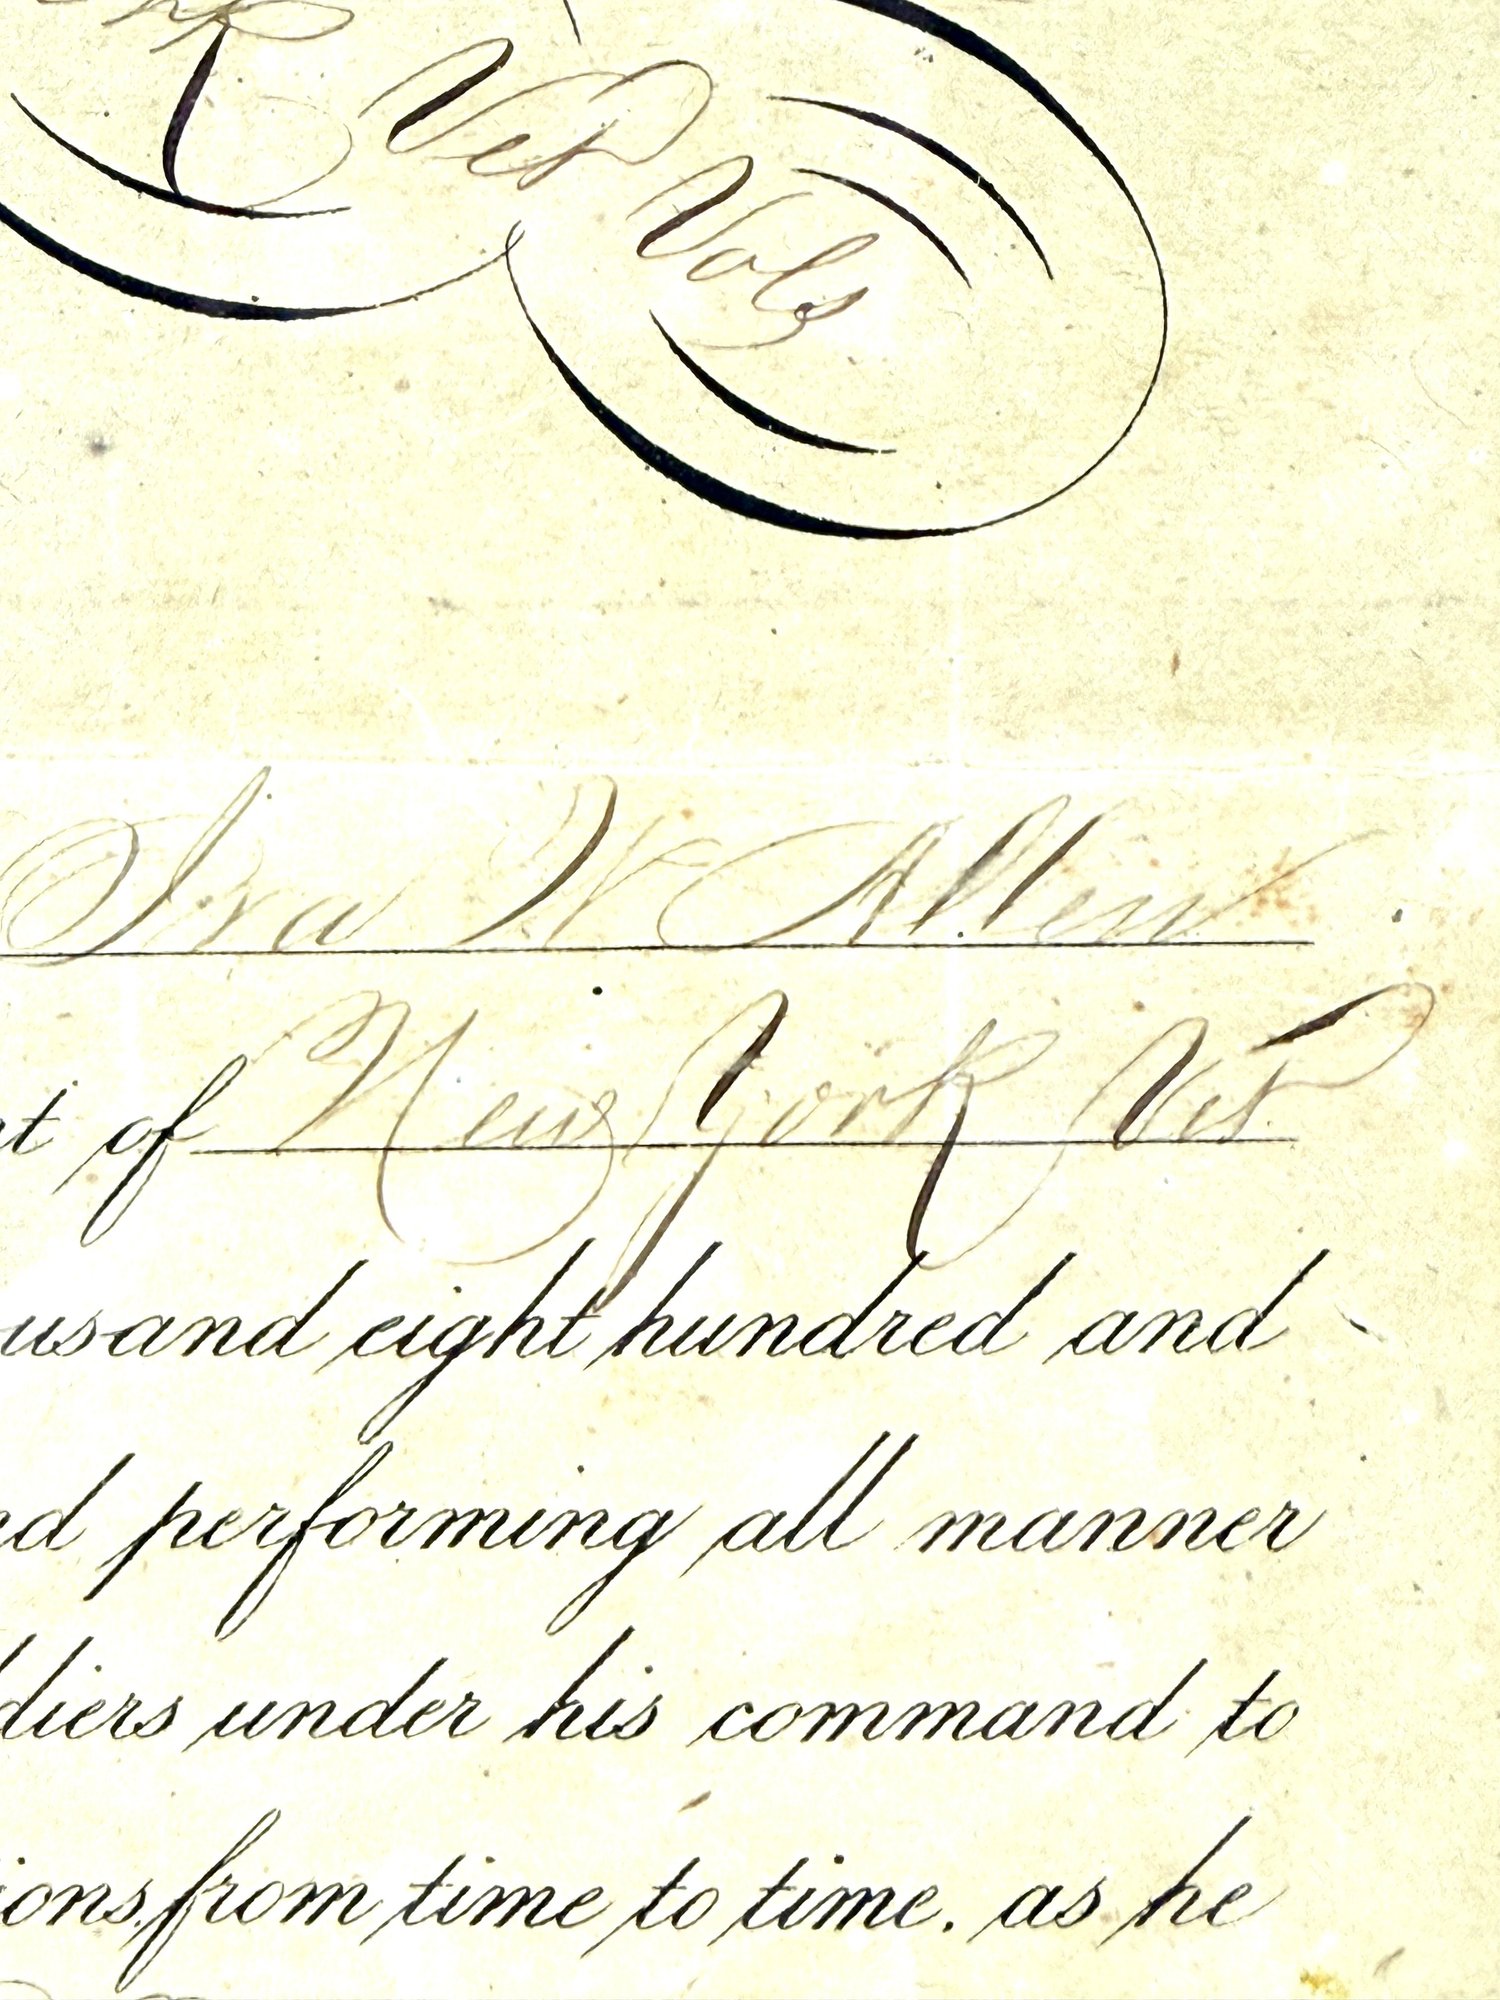 Vet Vols
Ira W Allen
of New York Vet
usand eight hundred and
performing all manner
diers under his command to
ions, from time to time. as he